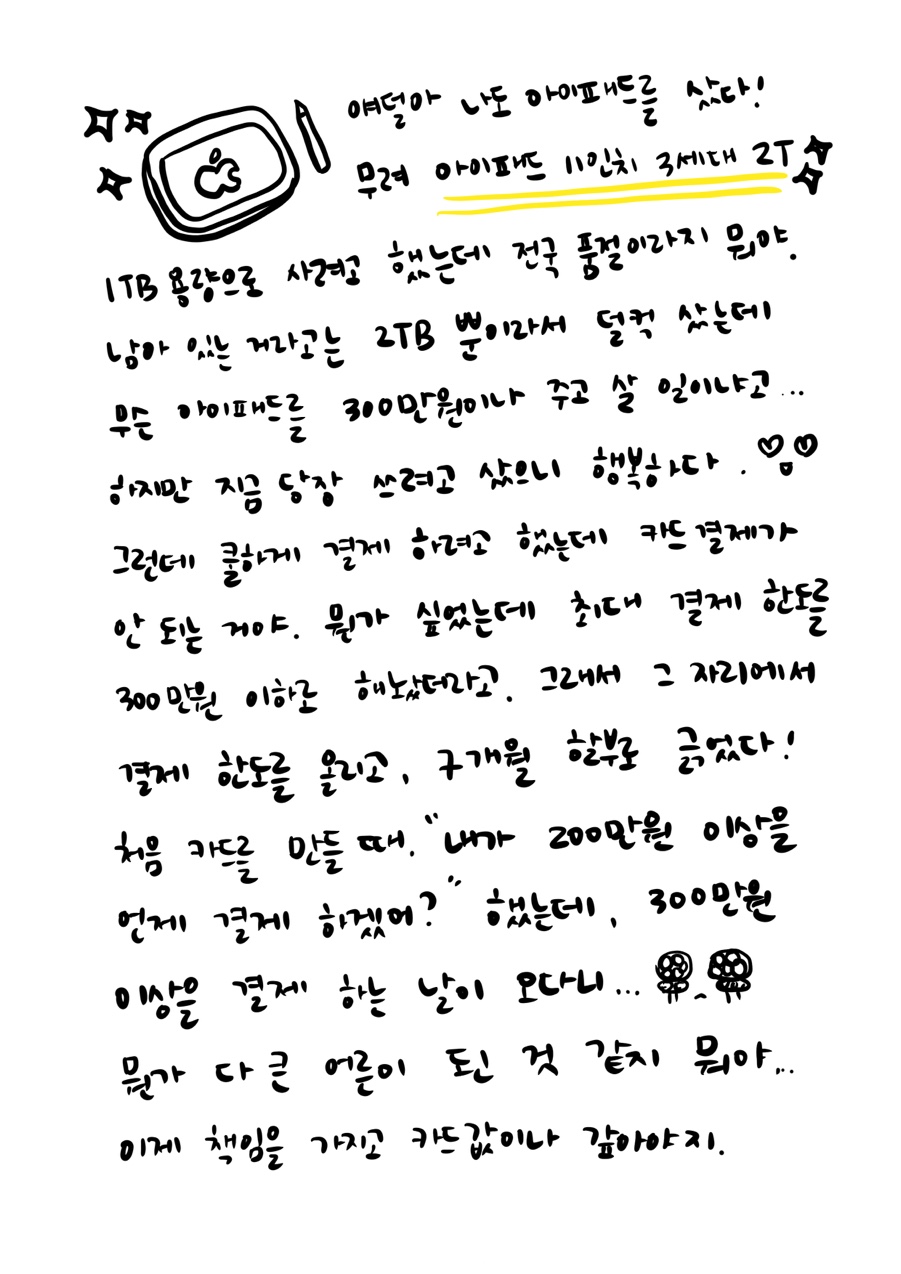 여덜아 나도 아이패드를 샀다!
무려 아이패드 11인치 3세대 2T
1TB 용량으로 사려고 했는데 전국 품절이라지 뭐야.
남아 있는 거라고는 2TB 뿐이라서 덜컥 샀는데
무슨 아이패드를 300만원이나 주고 살 일이냐고...
하지만 지금 당장 쓰려고 샀으니 행복하다.
그런데 쿨하게 결제 하려고 했는데 카드결제가
안 되는 거야. 뭔가 싶었는데 최대 결제 한도를
300만원 이하로 해놨더라고. 그래서 그 자리에서
결제 한도를 올리고, 7개월 할부로 긁었다!
처음 카드를 만들 때. "내가 200만원 이상을
언제 결제 하겠어?" 했는데, 300만원
이상을 결제 하는 날이 오다니...
뭔가 다 큰 어른이 된 것 같지 뭐야...
이제 책임을 가지고 카드값이나 갚아야지.